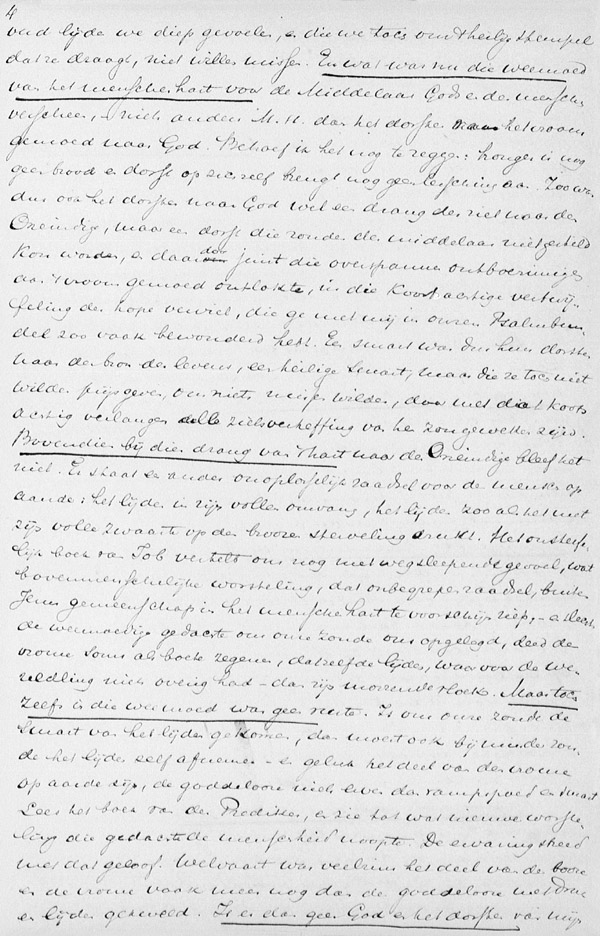 4
oud lijde we diep gevoele, e die we toch om 't heilig stempel
dat ze draagt, niet wille misse. En wat was nu die weemoed
van het menschehart voor de Middelaar Gods e de mensche
verscheen, - niets anders M. H. dan het dorste van het vroom
gemoed naar God. Behoef ik het nog te zegge: honger is nog
geen brood e dorst op zich zelf brengt nog geen lessching aan. Zoo was
dus ook het dorste naar God wel een drang der ziel naar de
Oneindige, maar een dorst die zonder de middelaar niet gestild
kon worden, e daar juist die overspanne ontboezeminge
aan 't vroom gemoed ontlokte, in die koortsachtige vertwij-
feling der hope verviel, die ge met mij in onzen Psalmbun-
del zoo vaak bewonderd hebt. Een smart was dus hun dorste
naar de bron des levens, een heilige smart, maar die ze toch niet
wilde prijsgeve, om niets misse wilde, daar met dat koorts
achtig verlange alle zielsverheffing van hen zou geweken zijn.
Bovendien bij die drang van 't hart naar de Oneindige bleef het
niet. Er staat een ander onoplosselijk raadsel voor de mensch op
aarde: het lijde in zijn volle omvang, het lijde zoo als het met
zijn volle zwaarte op de brooze sterveling drukt. Het onsterfe-
lijk boek van Job vertelt ons nog met wegsleepend gevoel, wat
bovenmenschelijke worsteling, dat onbegrepe raadsel, buite
Jezus gemeenschap in het menschehart te voorschijn riep, - e slechts
de weemoedige gedachte om onze zonde ons opgelegd, deed de
vrome soms als boete zegene, datzelfde lijde, waarvoor de we-
reldling niets overig had - dan zijn morrende vloek. Maar toch
zelfs in die weemoed was geen ruste. Is om onze zonde de
smart van het lijde gekome, dan moest ook bij minder zon-
de het lijde zelf afneme - e geluk het deel van de vrome
op aarde zijn, de goddeloose nietsever dan rampspoed e smart
Lees het boek van de Prediker, e zie tot wat nieuwe worste-
ling die gedachte de menschheid noopte. De ervaring streed
met dat geloof. Welvaart was veelzins het deel van de booze
e de vrome vaak meer nog dan de goddeloose met druk
e lijde gekweld. Is er dan geen God e het dorste van mijn